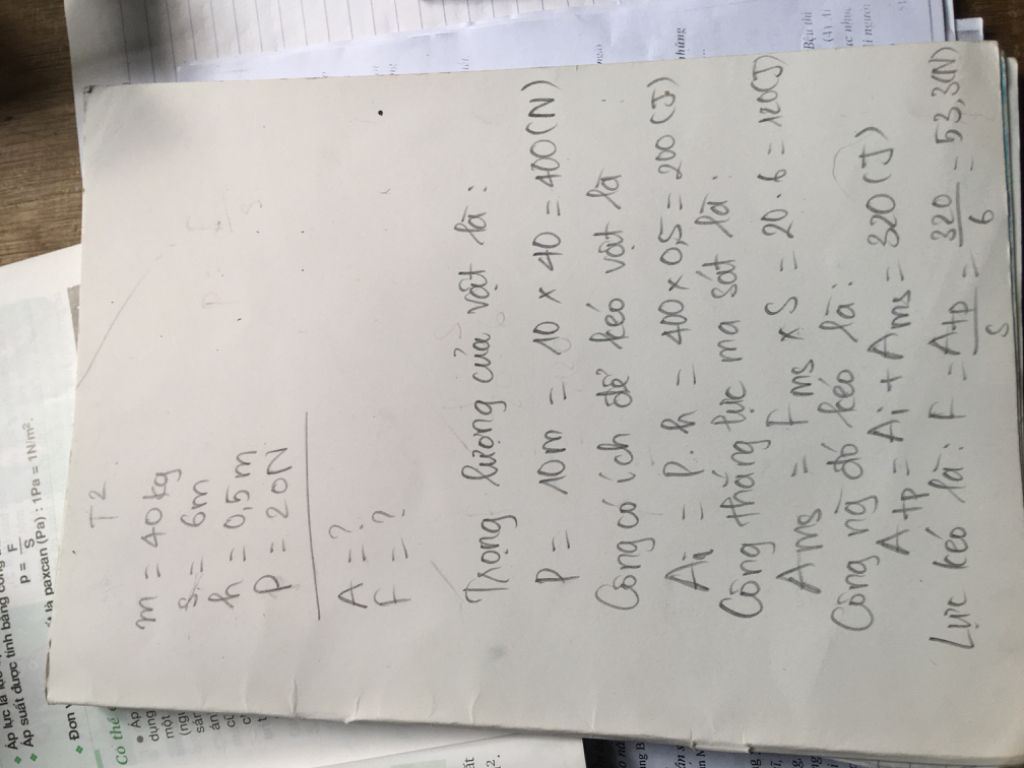 T2
m = 40 kg
s = 6m
h = 0,5 m
P = 20N
A = ?
F = ?
Trọng lượng của vật là :
P = 10m = 10 × 40 = 400(N)
Công có ích để kéo vật là
Ai = P. h = 400 × 0,5 = 200 (J)
Công thắng lực ma sát là :
Ams = Fms × S = 20.6 = 120(J)
Công ng đó kéo là :
Atp = Ai + Ams = 320 (J)
Lực kéo là : F = Atp/S = 320/6 = 53,3(N)
Áp suất được tính bằng công
p = F/S
là paxcan (Pa) : 1Pa = 1N/m².
Đơn
Có thể
Áp
dụng
một